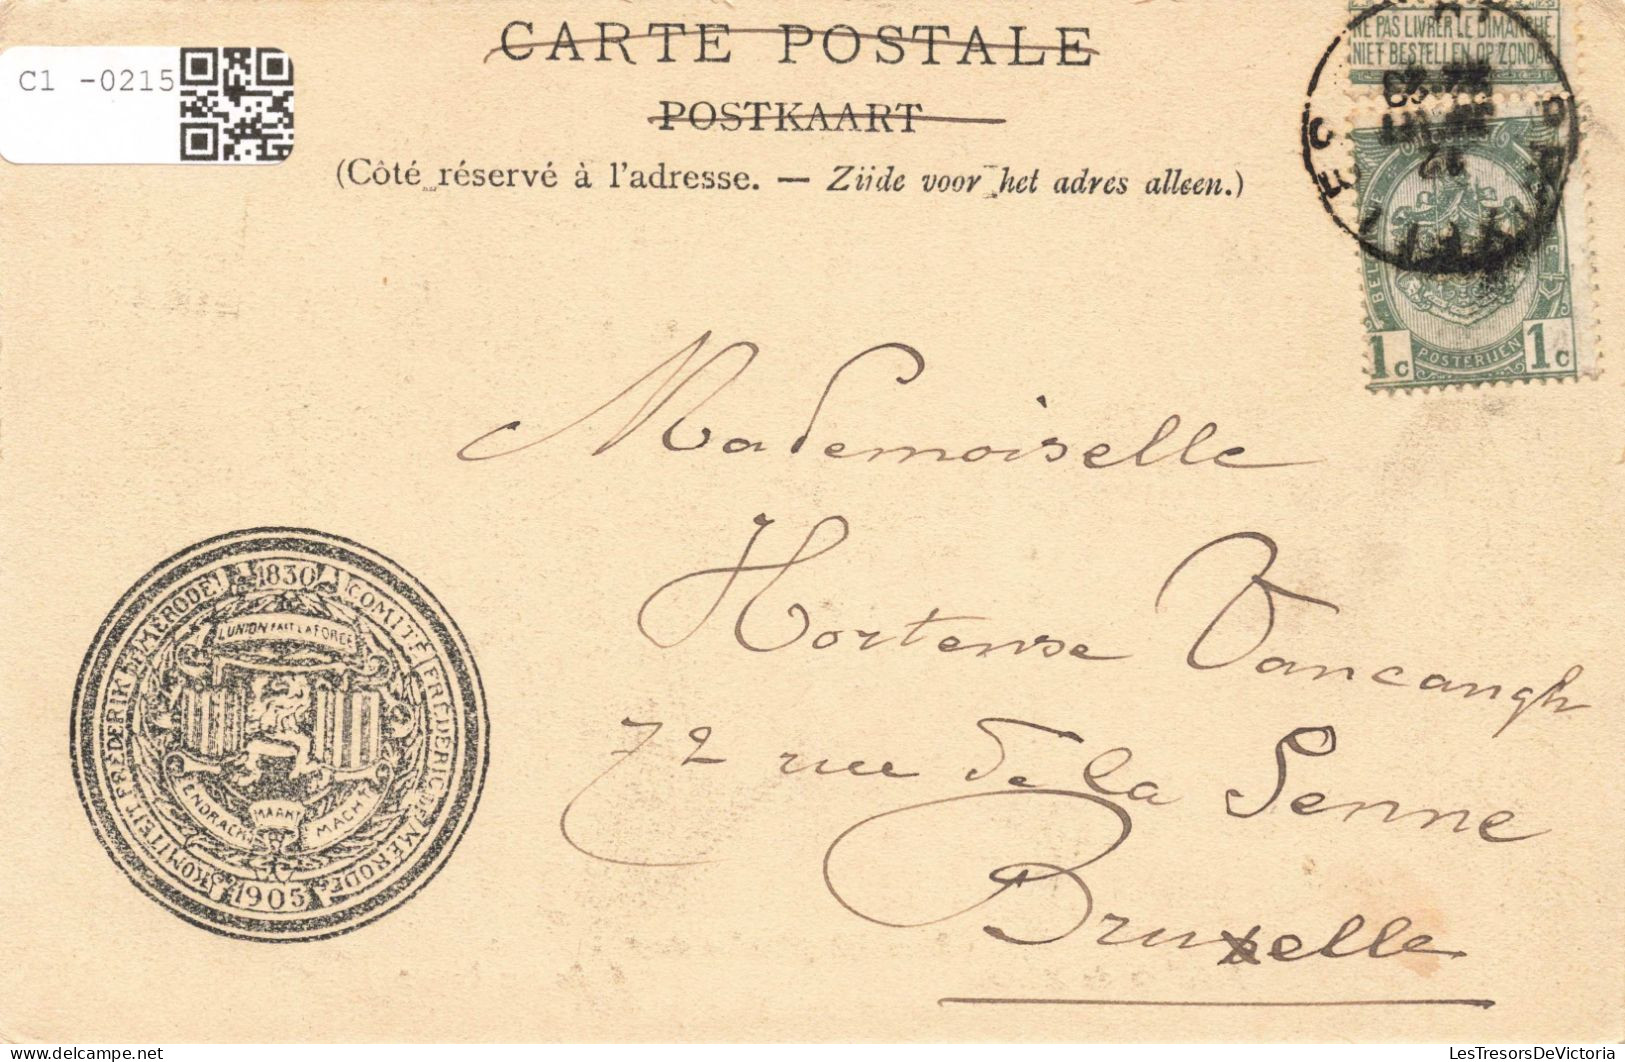 CARTE POSTALE
POSTKAART
(Côté réservé à l'adresse. — Zijde voor het adres alleen.)
C1 -0215
NE PAS LIVRER LE DIMANCHE
NIET BESTELLEN OP ZONDAG
12
POSTERIJEN
1c 1c
Mademoiselle
Hortense Vancangh
72 rue de la Senne
Bruxelle
1830 COMITÉ FREDERIC DE MERODE
1905 KOMITEIT FREDERIK DE MERODE
L'UNION FAIT LA FORCE
EENDRACHT MAAKT MACHT
LesTresorsDeVictoria
https://www.delcampe.net